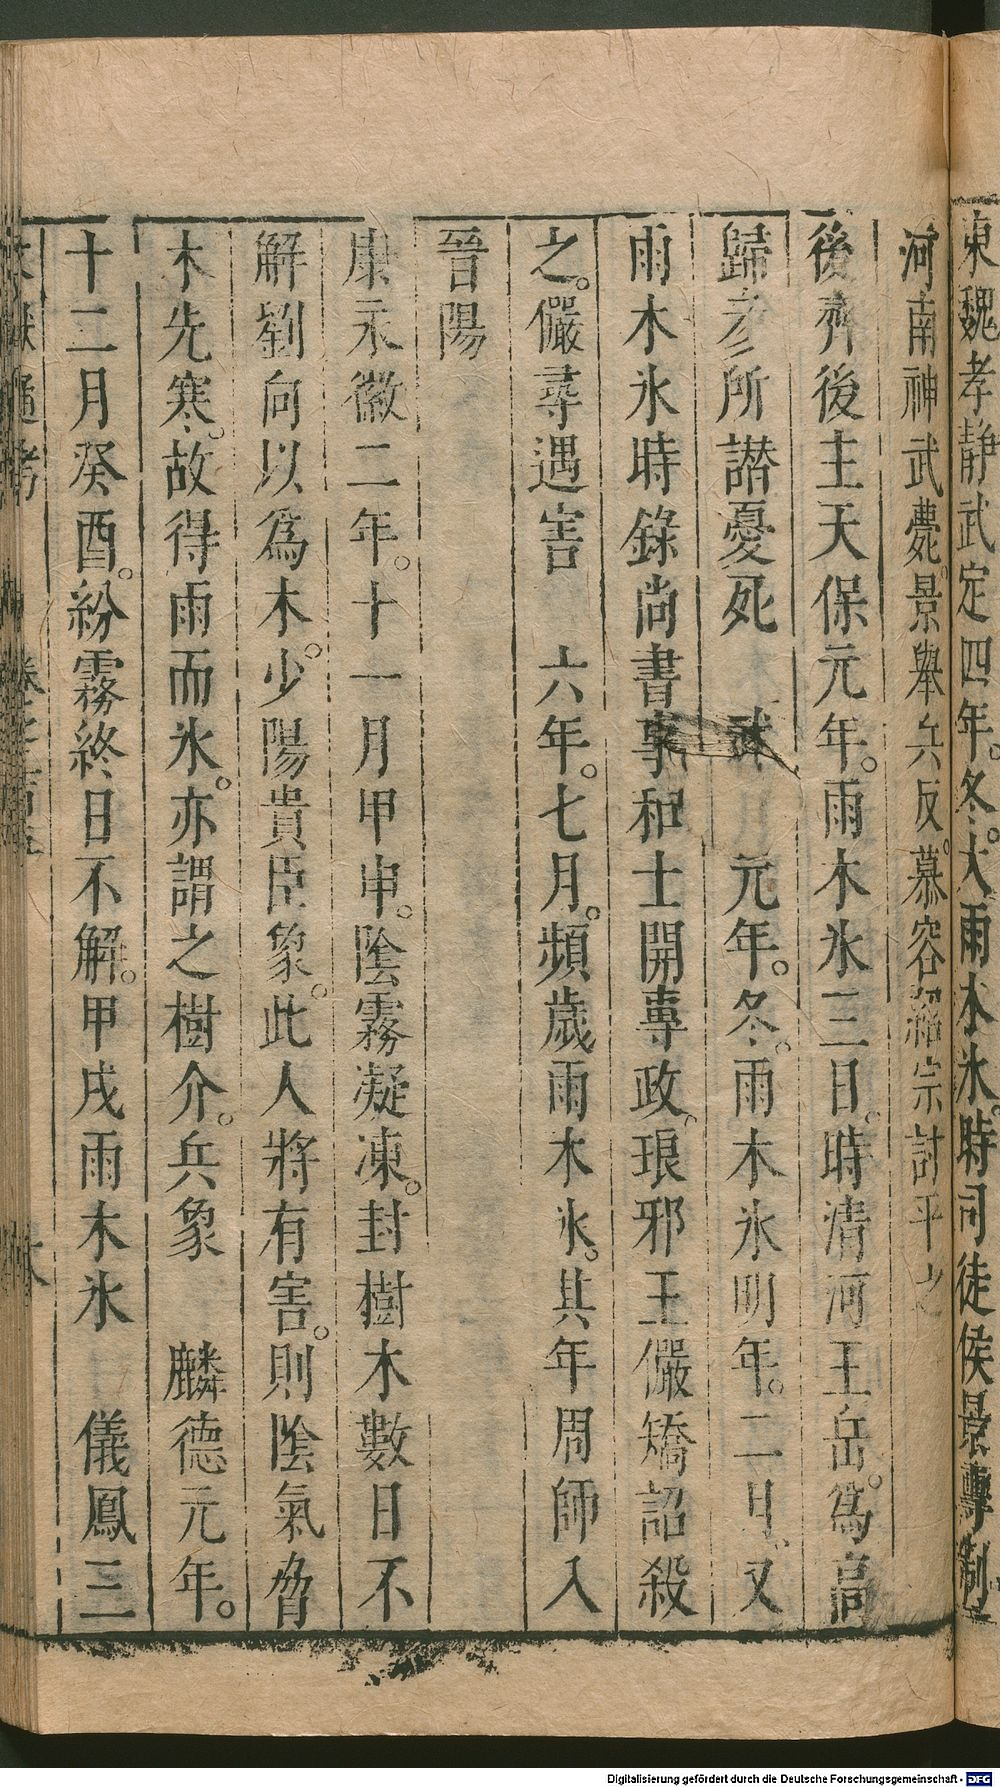 東魏孝静武定四年。冬。大雨木氷。時司徒侯景專制
河南神武薨。景舉兵反。慕容紹宗討平之
後齊後主天保元年。雨木氷三日。時清河王岳。爲高
歸彦所譛憂死 武 元年。冬。雨木氷明年。二月又
雨木氷時錄尚書事和士開專政。琅邪王儼矯詔殺
之。儼尋遇害 六年。七月。頻歲雨木氷。其年周師入
晉陽
唐永徽二年。十一月甲申。陰霧凝凍。封樹木數日不
解劉向以爲木。少陽貴臣象。此人將有害。則陰氣脅
木先寒。故得雨而氷。亦謂之樹介。兵象 麟德元年。
十二月癸酉。紛霧終日不解。甲戌雨木氷 儀鳳三
Digitalisierung gefördert durch die Deutsche Forschungsgemeinschaft - DFG